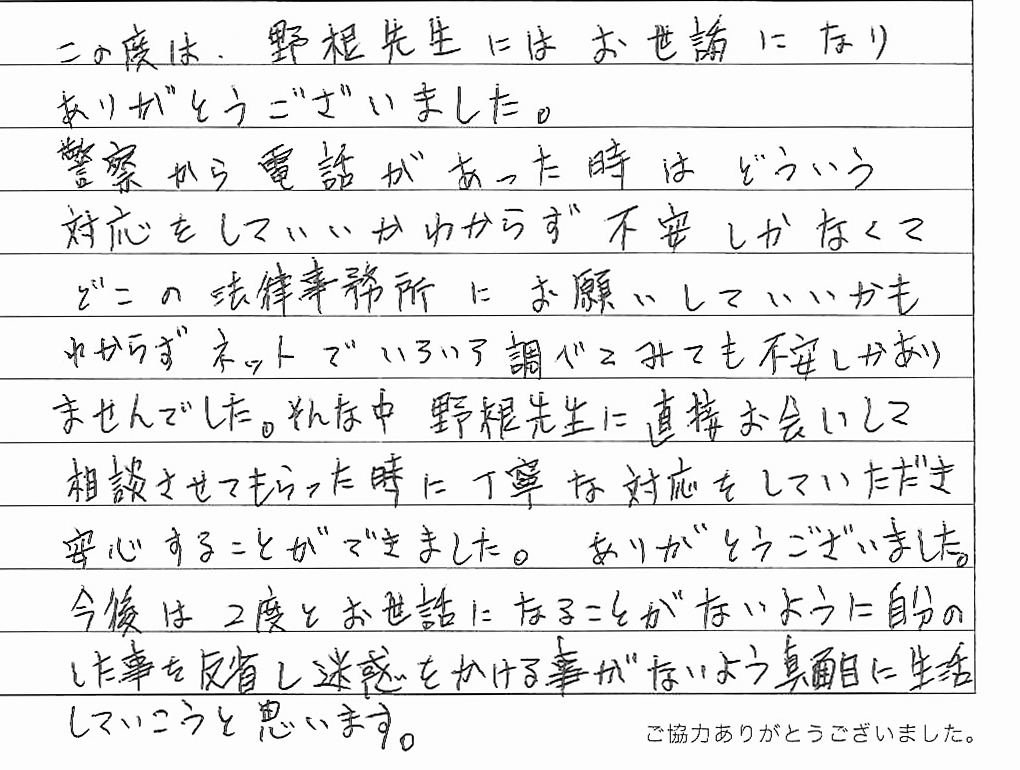 この度は、野根先生にはお世話になり
ありがとうございました。
警察から電話があった時はどういう
対応をしていいかわからず不安しかなくて
どこの法律事務所にお願いしていいかも
わからずネットでいろいろ調べてみても不安しかあり
ませんでした。そんな中野根先生に直接お会いして
相談させてもらった時に丁寧な対応をしていただき
安心することができました。ありがとうございました。
今後は2度とお世話になることがないように自分の
した事を反省し迷惑をかける事がないよう真面目に生活
していこうと思います。
ご協力ありがとうございました。